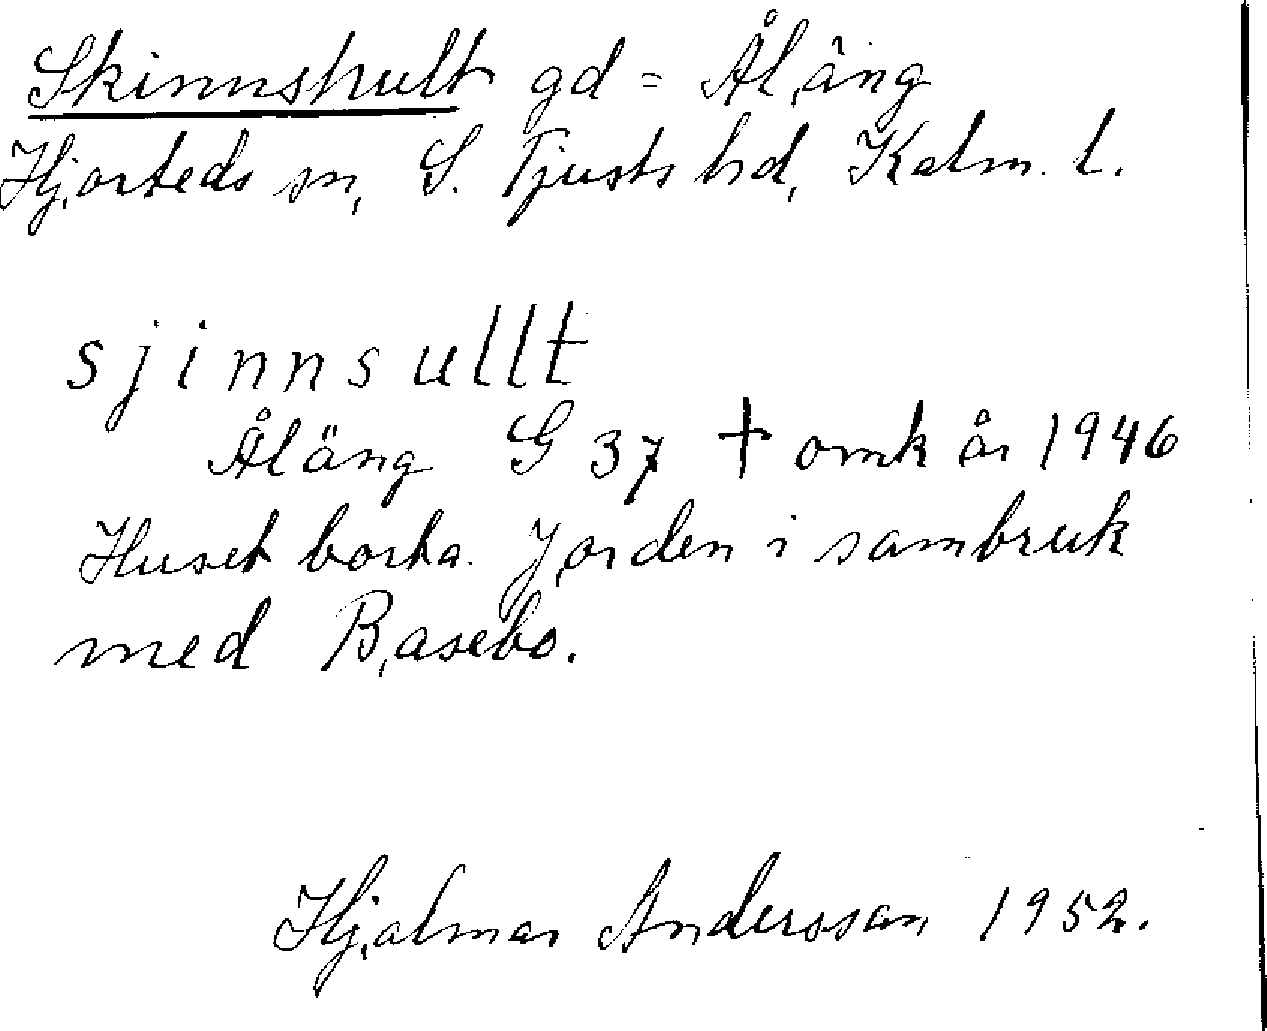 Skinnshult gd = Åläng
Hjorteds sn, S. Tjusts hd, Kalm. l.
sjinnsullt
Åläng G 37 † omk år 1946
Huset borta. Jorden i sambruk
med Basebo.
Hjalmar Andersson 1952.